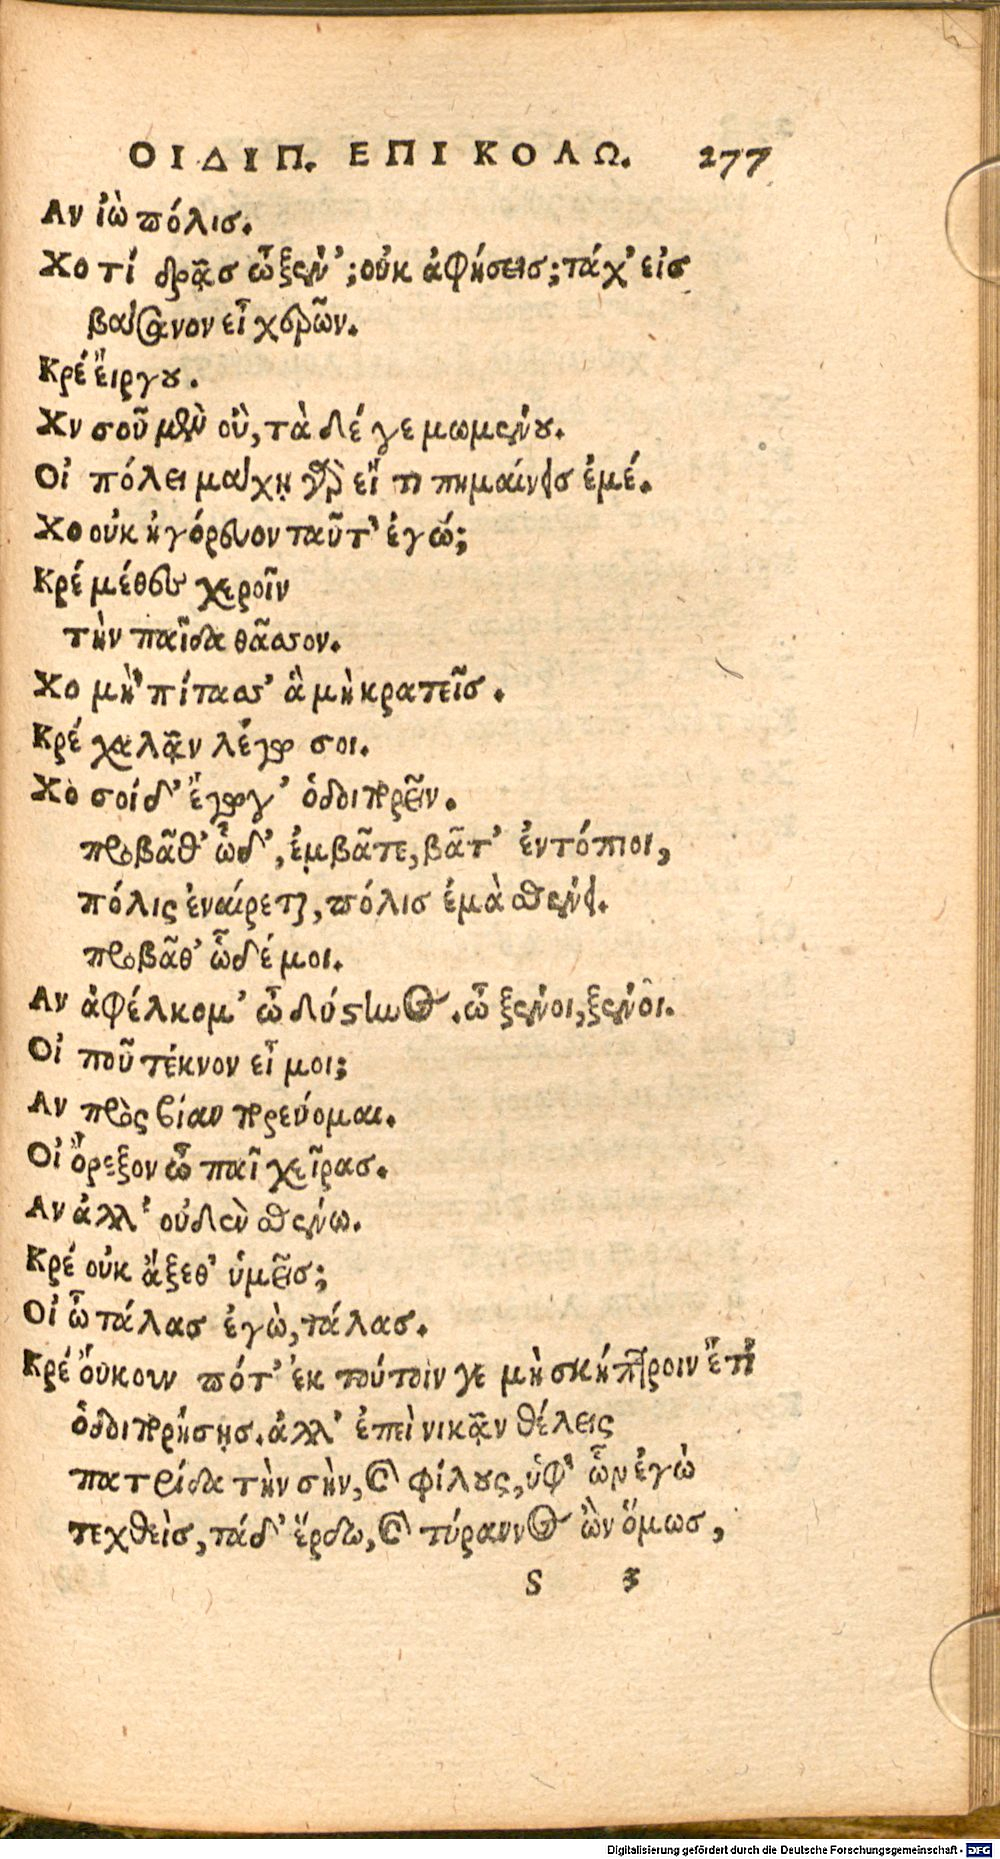 ΟΙΔΙΠ. ΕΠΙ ΚΟΛΩ. 277
Αν ἰὼ πόλισ.
Χο τί δρᾷσ ὦ ξεῖν'; οὐκ ἀφήσεισ; τάχ' εἰσ
βάσανον εἶ χερῶν.
Κρέ εἴργου.
Χν σοῦ μὲν οὒ, τὰ δέ γε μωμένου.
Οἰ πόλει μάχῃ γὰρ εἴ τι πημαίνεισ ἐμέ.
Χο οὐκ ἠγόρευον ταῦτ' ἐγώ;
Κρέ μέθευ χεροῖν
τὴν παῖδα θᾶσσον.
Χο μὴ 'πίτασσ' ἃ μὴ κρατεῖσ.
Κρέ χαλᾷν λέγω σοι.
Χὸ σοί δ' ἔγωγ' ὁδοιπορεῖν.
προβᾶθ' ὧδ', ἐμβᾶτε, βᾶτ' ἐντόπιοι,
πόλις ἐναίρεται, πόλισ ἐμὰ σθένει.
προβᾶθ' ὧδέ μοι.
Αν ἀφέλκομ' ὦ δύστηνος. ὦ ξένοι, ξένοι.
Οἰ ποῦ τέκνον εἶ μοι;
Αν πρὸς βίαν πορεύομαι.
Οἰ ὄρεξον ὦ παῖ χεῖρασ.
Αν ἀλλ' οὐδὲν σθένω.
Κρέ οὐκ ἄξεθ' ὑμεῖσ;
Οἰ ὦ τάλασ ἐγὼ, τάλασ.
Κρέ ὄυκουν πότ' ἐκ τούτοιν γε μὴ σκήπτροιν ἔτι
ὁδοιπορήσῃσ. ἀλλ' ἐπεὶ νικᾷν θέλεις
πατρίδα τὴν σὴν, καὶ φίλους, ὑφ' ὧν ἐγὼ
τεχθεὶσ, τάδ' ἔρδω, καὶ τύραννος ὢν ὅμωσ,
S 3
Digitalisierung gefördert durch die Deutsche Forschungsgemeinschaft - DFG